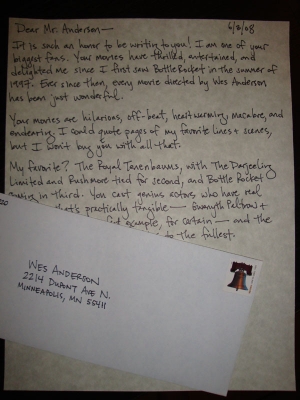 Dear Mr. Anderson— 6/2/08
It is such an honor to be writing to you! I am one of your
biggest fans. Your movies have thrilled, entertained, and
delighted me since I first saw Bottle Rocket in the summer of
1997. Ever since then, every movie directed by Wes Anderson
has been just wonderful.
Your movies are hilarious, off-beat, heartwarming, macabre, and
endearing. I could quote pages of my favorite lines + scenes,
but I won't bug you with all that.
My favorite? The Royal Tenenbaums, with The Darjeeling
Limited and Rushmore tied for second, and Bottle Rocket
in third. You cast genius actors who have real
that's practically tangible— Gwyneth Paltrow +
example, for certain— and the
to the fullest.
WES ANDERSON
2214 DUPONT AVE N.
MINNEAPOLIS, MN 55411